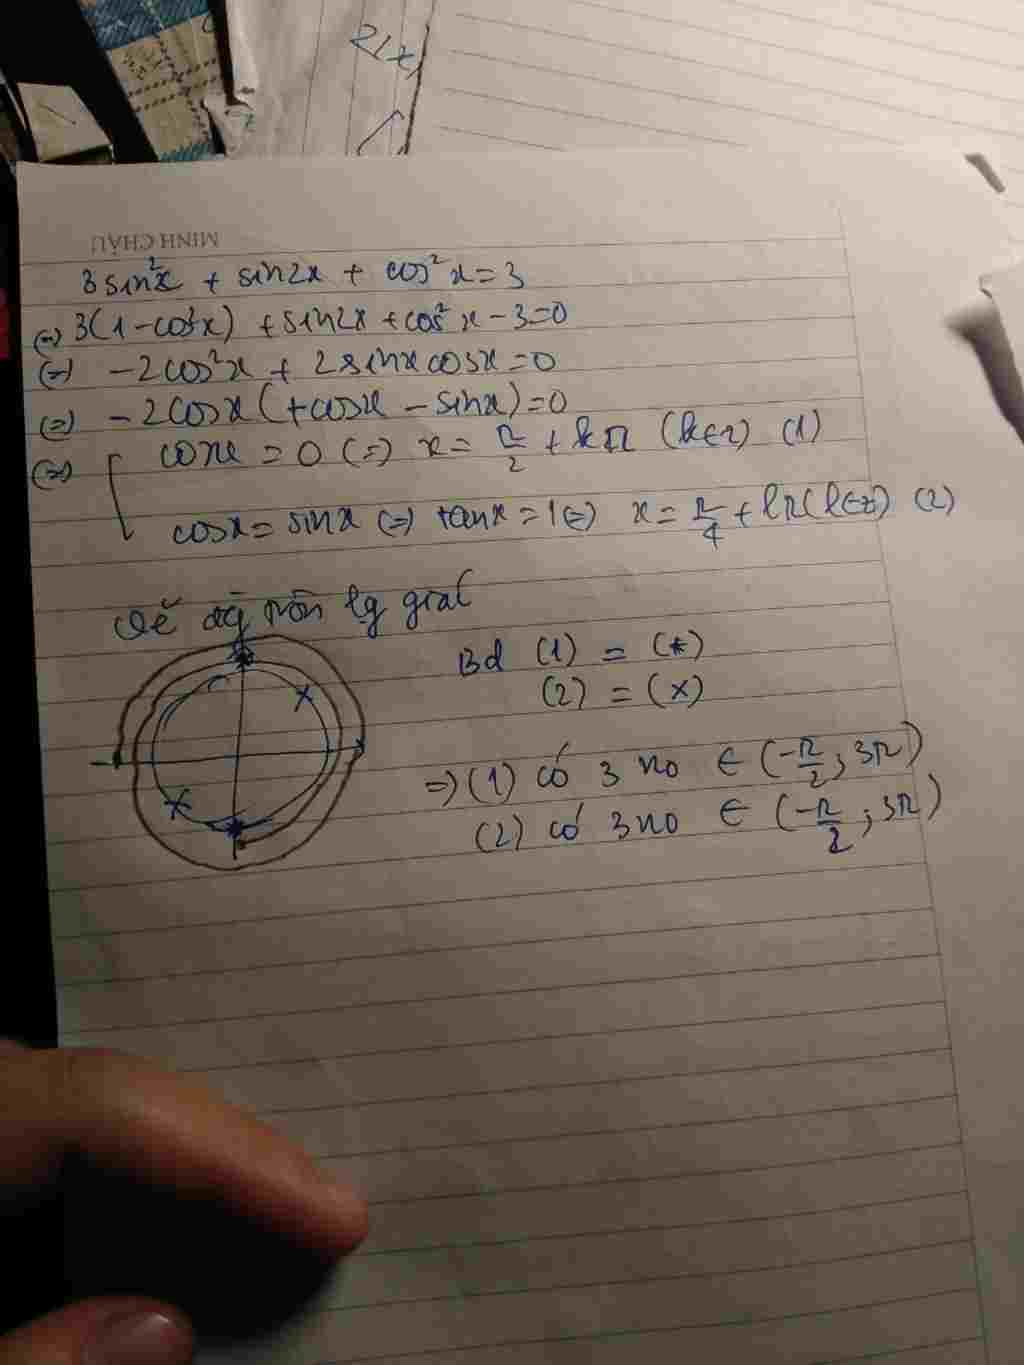 MINH CHÂU
3sin²x + sin2x + cos²x = 3
(=) 3(1 - cos²x) + sin2x + cos²x - 3 = 0
(=) -2cos²x + 2sinxcosx = 0
(=) -2cosx(+cosx - sinx) = 0
(=) [ cosx = 0 (=) x = π/2 + kπ (k∈Z) (1)
cosx = sinx (=) tanx = 1 (=) x = π/4 + lπ (l∈Z) (2)
Vẽ đg tròn lg giác
Bd (1) = (*)
(2) = (x)
=> (1) có 3 no ∈ (-π/2; 3π)
(2) có 3 no ∈ (-π/2; 3π)